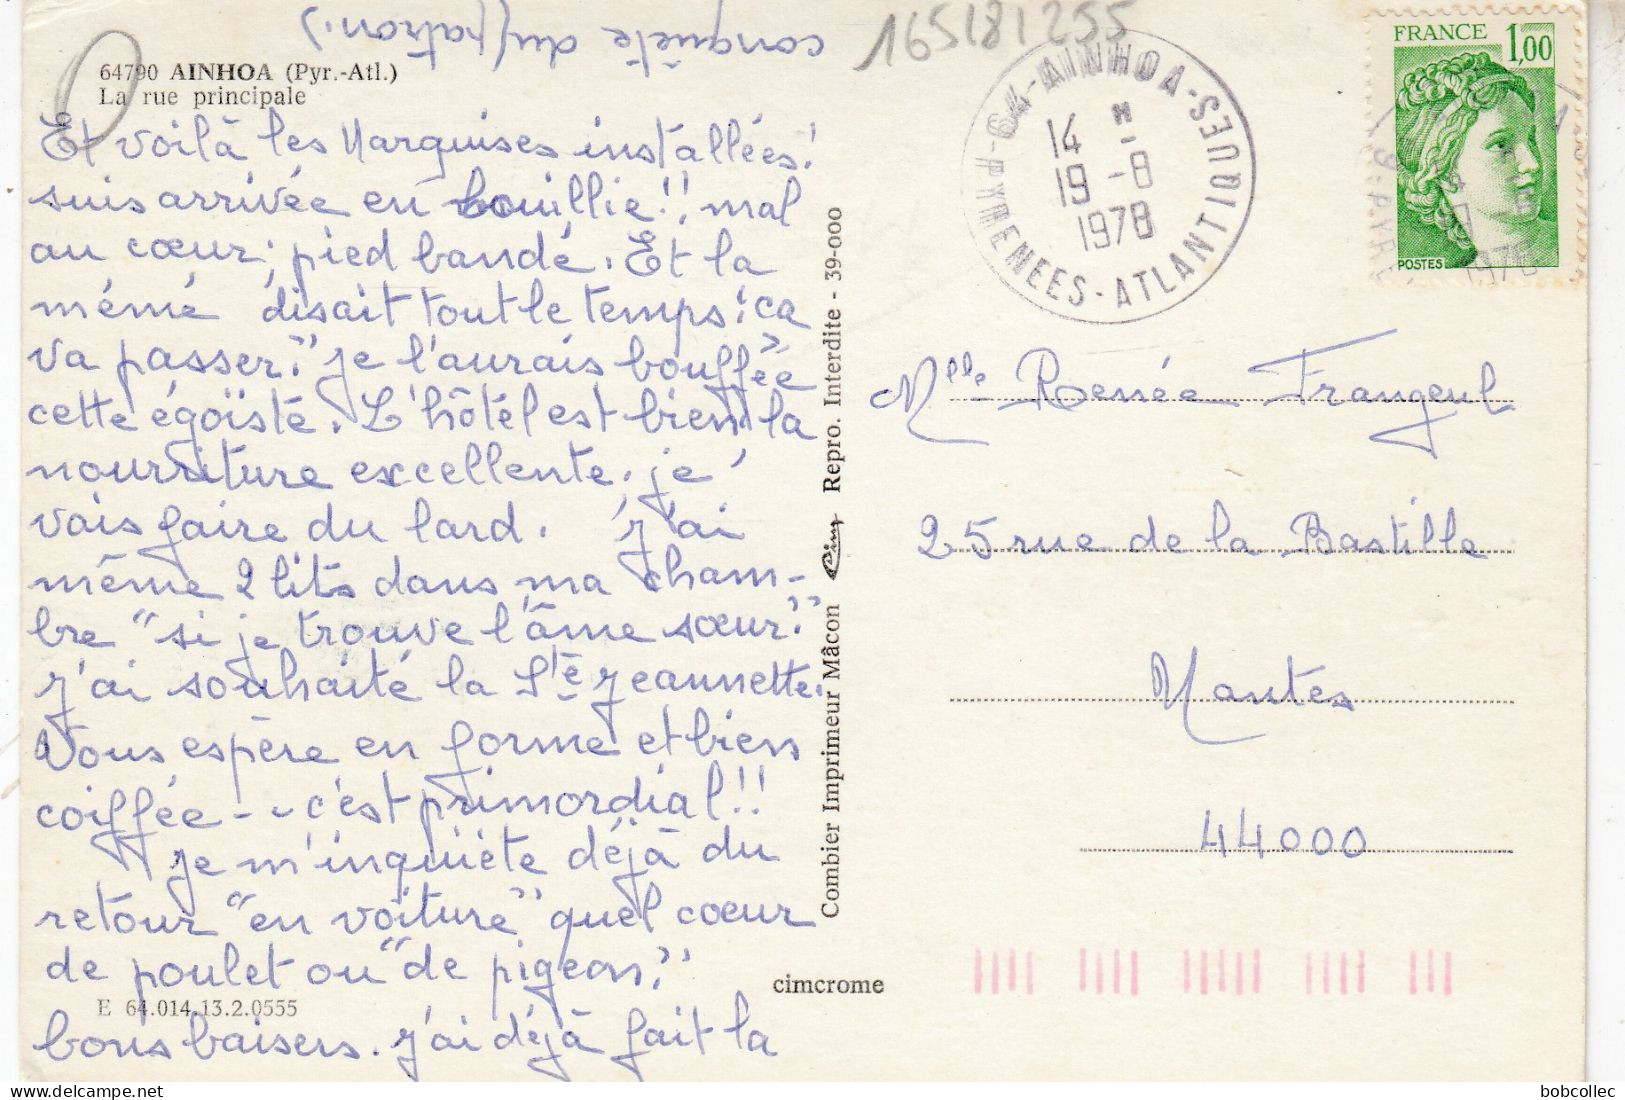 165181255
64790 AINHOA (Pyr.-Atl.)
La rue principale
Et voilà les Marquises installées!
suis arrivée en bouillie!! mal
au cœur, pied bandé. Et la
mémé disait tout le temps "ça
va passer" je l'aurais bouffée
cette égoïste. L'hôtel est bien, la
nourriture excellente. je
vais faire du lard. J'ai
même 2 lits dans ma cham-
bre "si je trouve l'âme sœur."
J'ai souhaité la Ste Jeannette.
Vous espère en forme et bien
coiffée -- c'est primordial!!
Je m'inquiète déjà du
retour "en voiture" quel cœur
de poulet ou "de pigeon"
bons baisers. J'ai déjà fait la
conquête du patron.)
E 64.014.13.2.0555
Combier Imprimeur Mâcon Cim Repro. Interdite - 39-000
cimcrome
64-AINHOA-S
PYRENEES-ATLANTIQUES
14 H
19 -8
1978
FRANCE
1,00
POSTES
1978
Mlle Renée Frangeul
25 rue de la Bastille
Nantes
44000
bobcollec